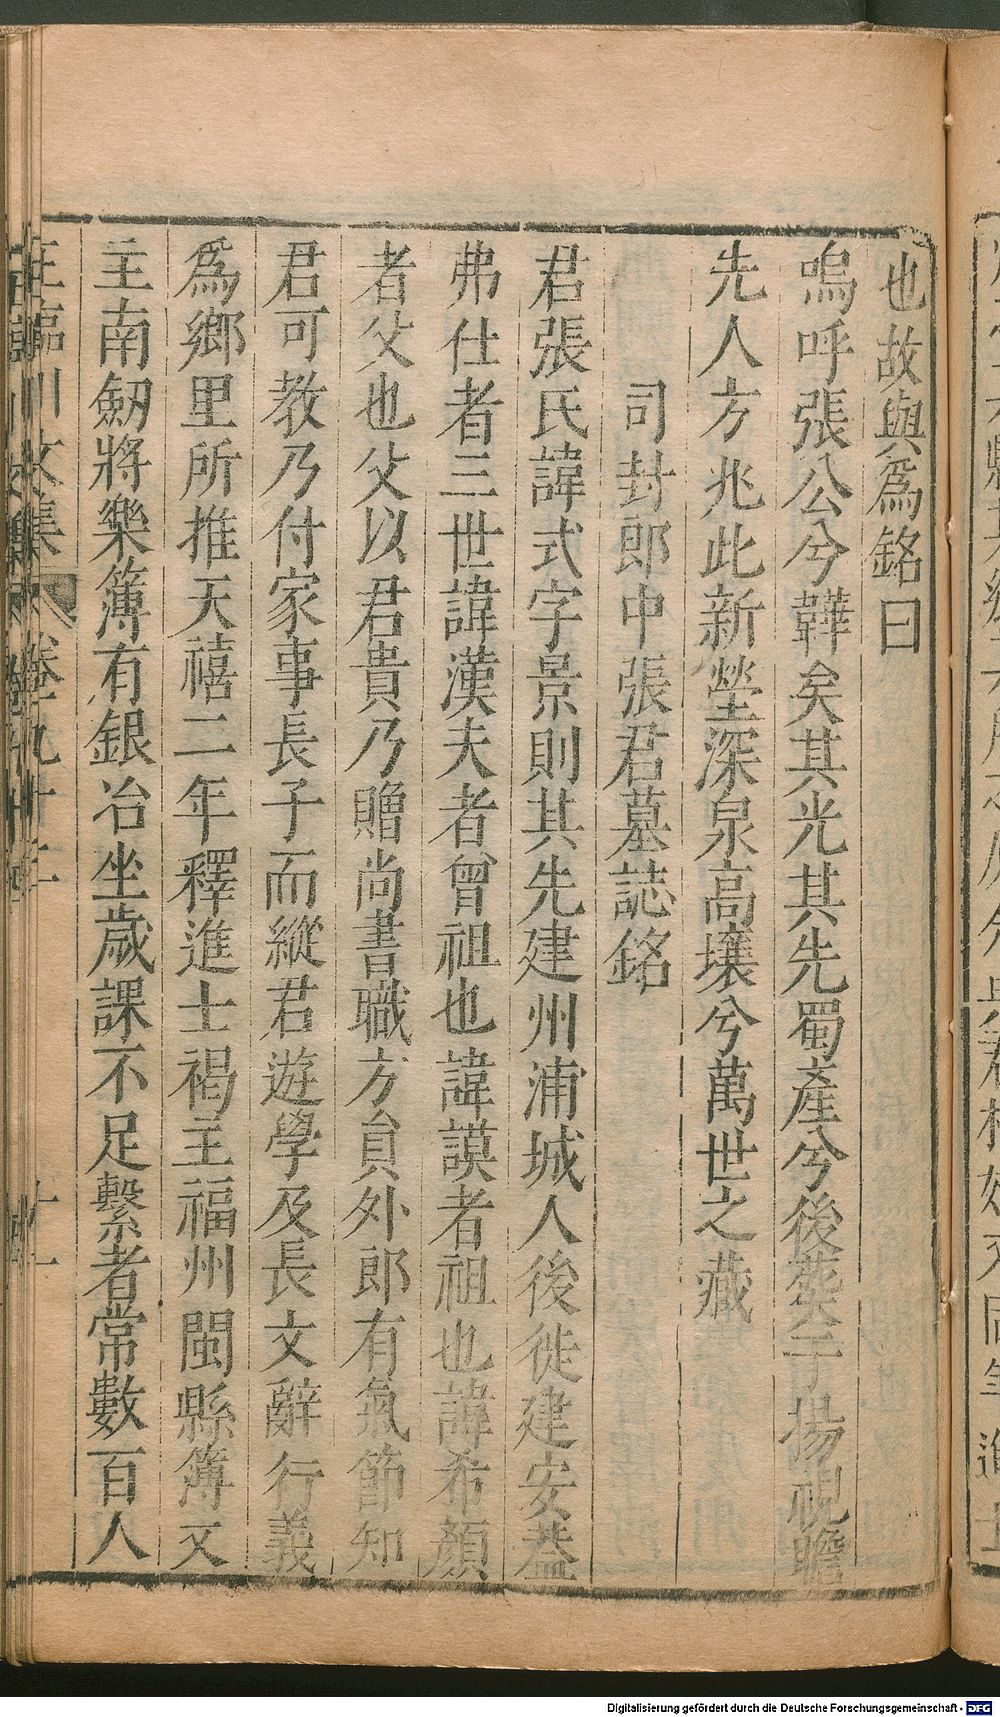 也故與爲銘曰
嗚呼張公兮韡矣其光其先蜀產兮後葬于揚視瞻
先人方兆此新塋深泉高壤兮萬世之藏
司封郎中張君墓誌銘
君張氏諱式字景則其先建州浦城人後徙建安葢
弗仕者三世諱漢夫者曾祖也諱謨者祖也諱希顔
者父也父以君貴乃贈尚書職方貟外郎有氣節知
君可教乃付家事長子而縱君遊學及長文辭行義
爲鄉里所推天禧二年釋進士褐主福州閩縣簿又
主南劒將樂簿有銀冶坐歲課不足繫者常數百人
王臨川文集 卷九十二 十一
Digitalisierung gefördert durch die Deutsche Forschungsgemeinschaft - DFG